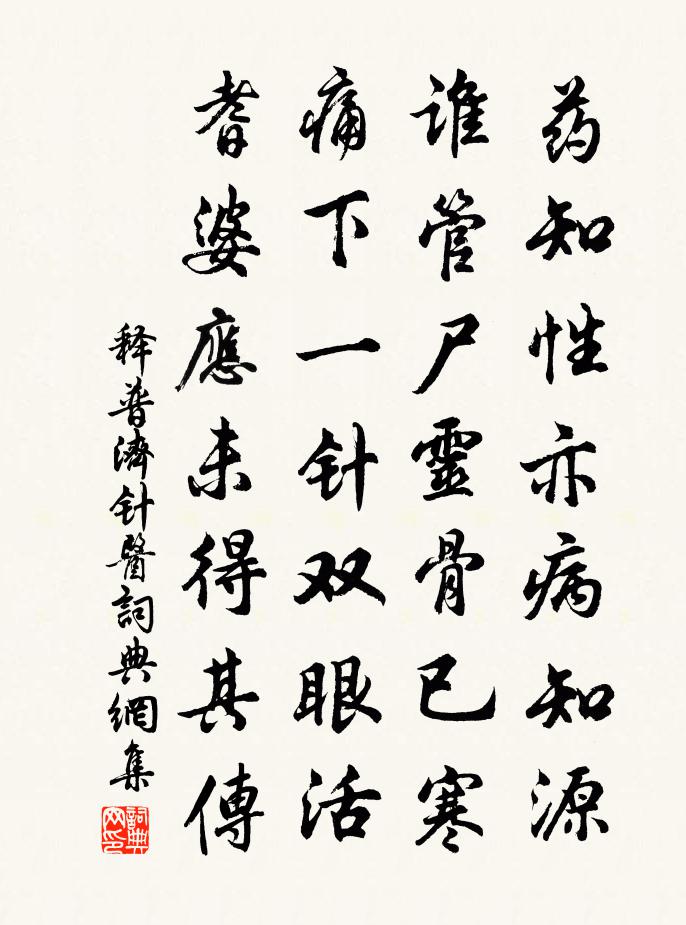 药知性亦病知源
谁管尸靈骨已寒
痛下一针双眼活
耆婆應未得其傳
释普濟针醫詞典網集
詞典网印